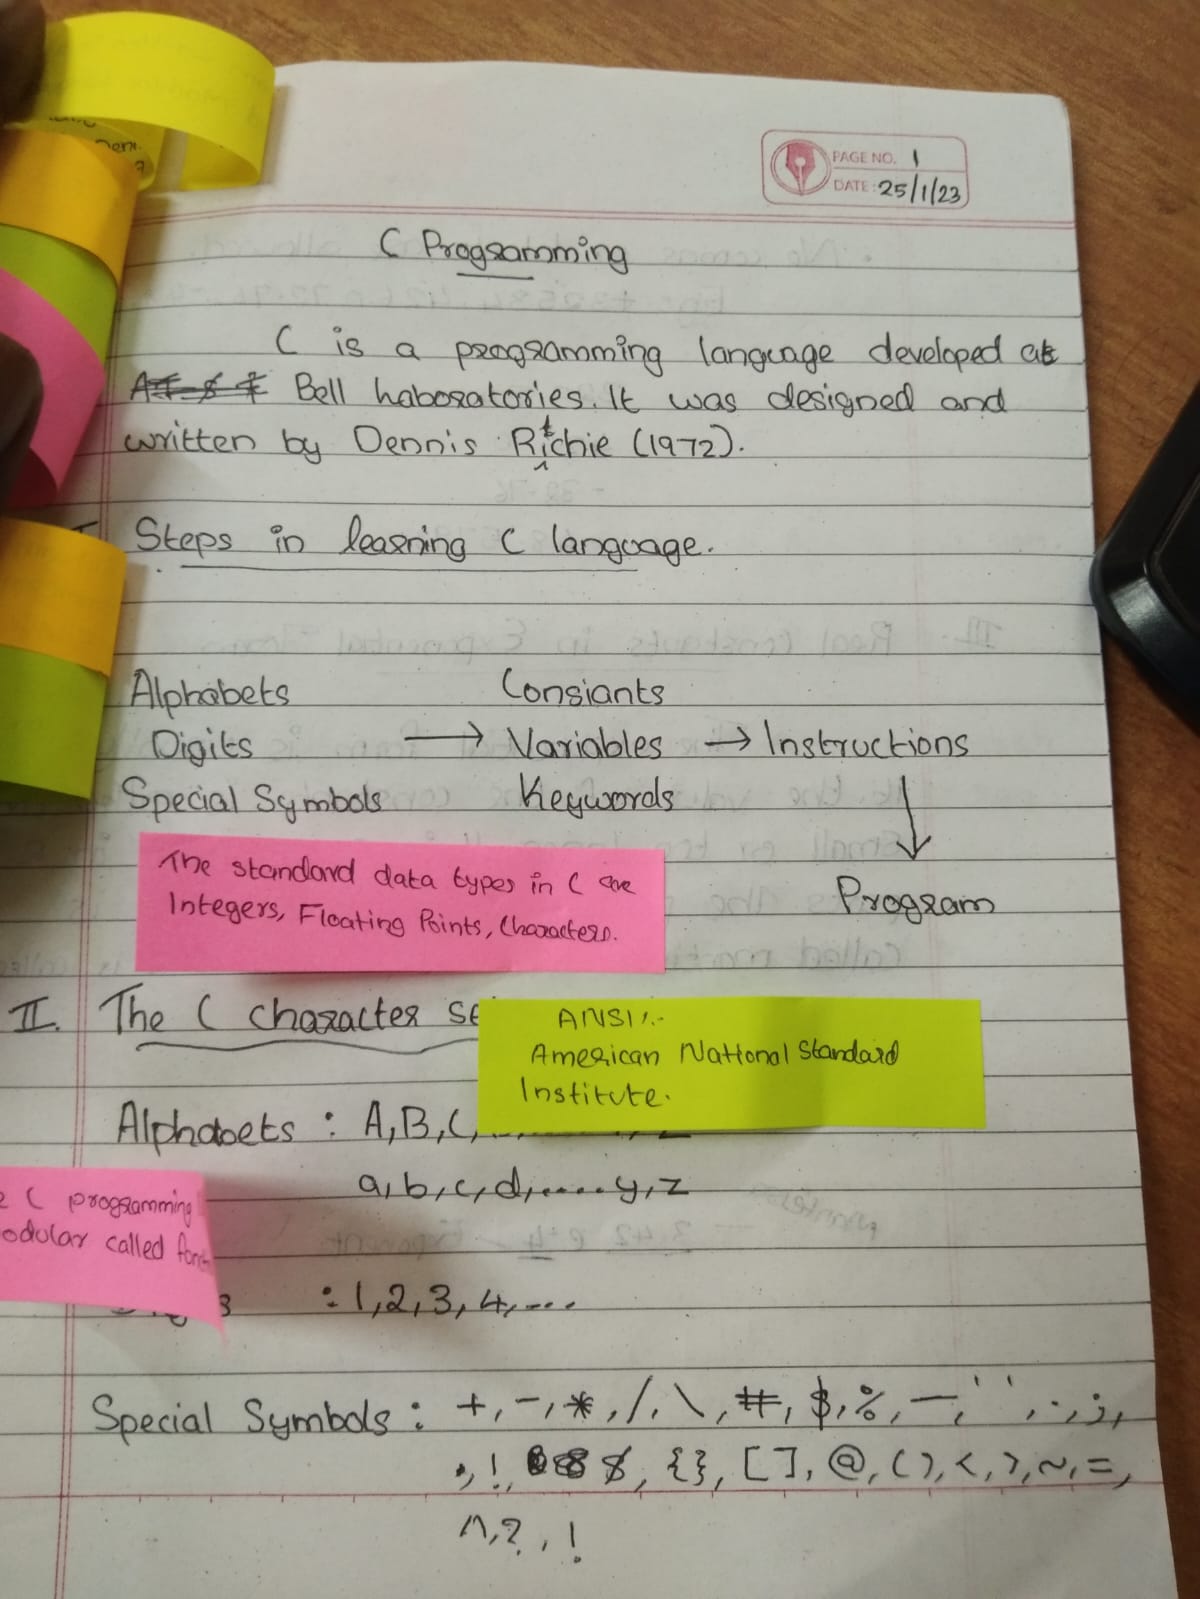 PAGE NO. 1
DATE: 25/1/23
C Programming
C is a programming language developed at
Bell Laboratories. It was designed and
written by Dennis Ritchie (1972).
I Steps in learning C language.
Alphabets Consiants
Digits → Variables → Instructions
Special Symbols Keywords
↓
The standard data types in C are
Integers, Floating Points, Characters.
Program
II. The C character se
ANSI:-
American National Standard
Institute.
Alphabets : A, B, C,
a, b, c, d, ..... y, z
C programming
odular called
: 1, 2, 3, 4, ...
Special Symbols : +, -, *, /, \, #, $, %, —, ' ', ., ;,
!, {}, [ ], @, ( ), <, >, ~, =,
^, ?, !